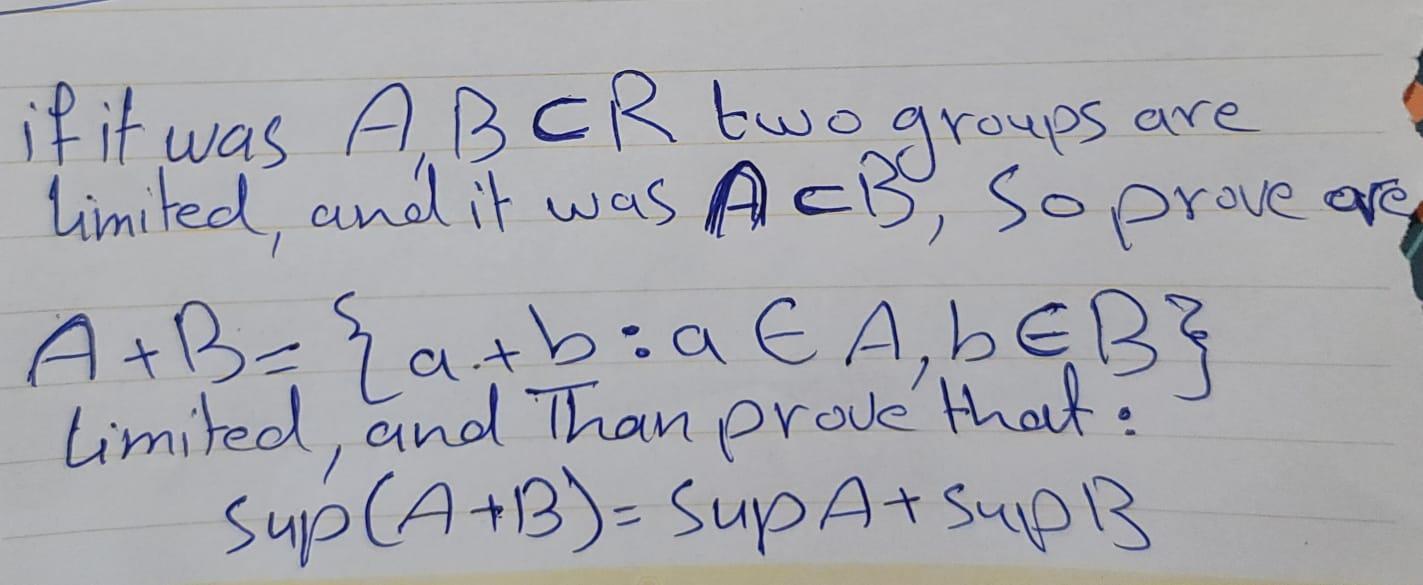 if it was A, B ⊂ R two groups are
limited, and it was A ⊂ B, So prove are
A + B = {a + b : a ∈ A, b ∈ B}
limited, and Than prove that :
sup(A+B) = sup A + sup B